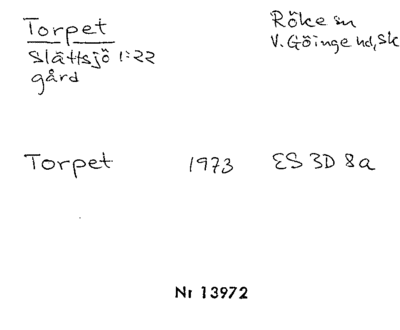 Torpet
Slättsjö 1:22
gård
Röke sn
V. Göinge hd, Sk
Torpet 1973 ES 3D 8a
Nr 13972